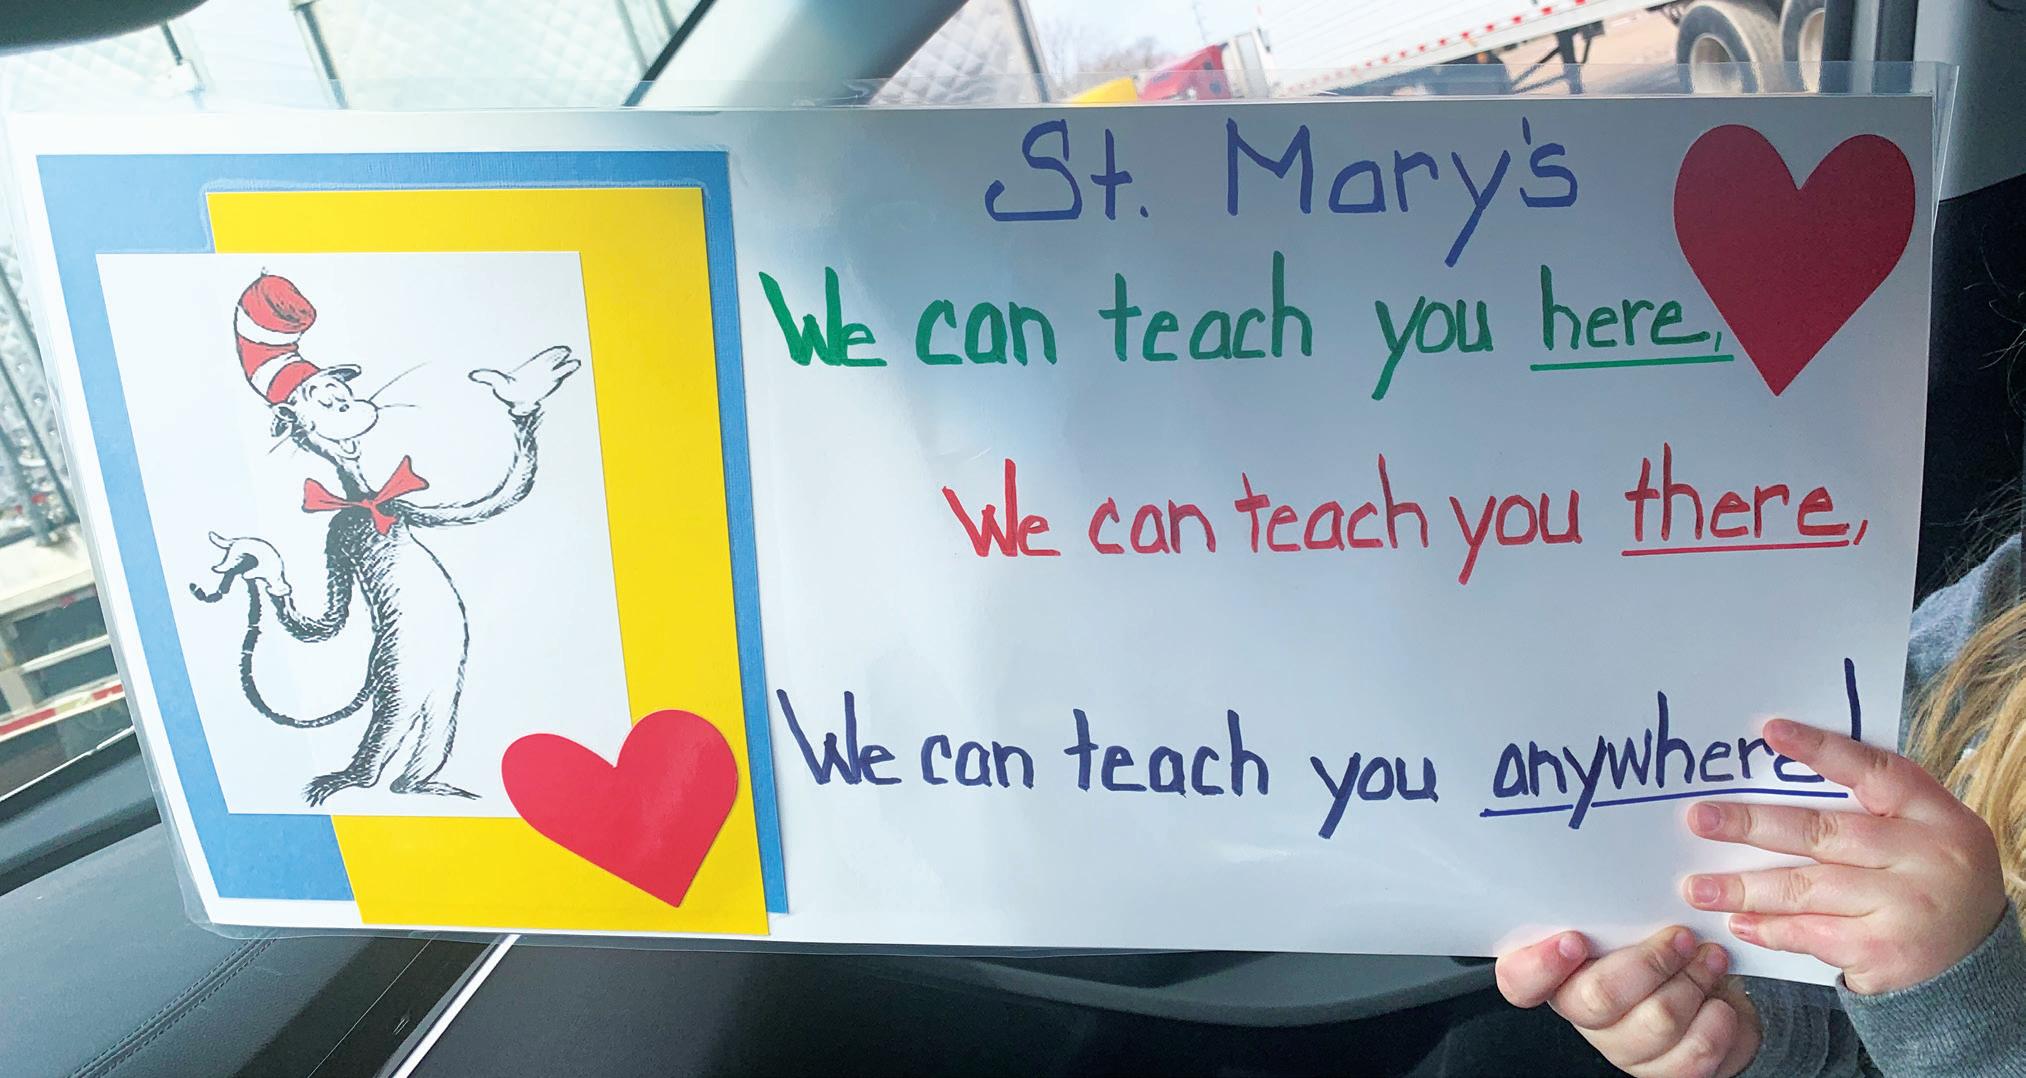 St. Mary's
We can teach you here,
We can teach you there,
We can teach you anywhere!